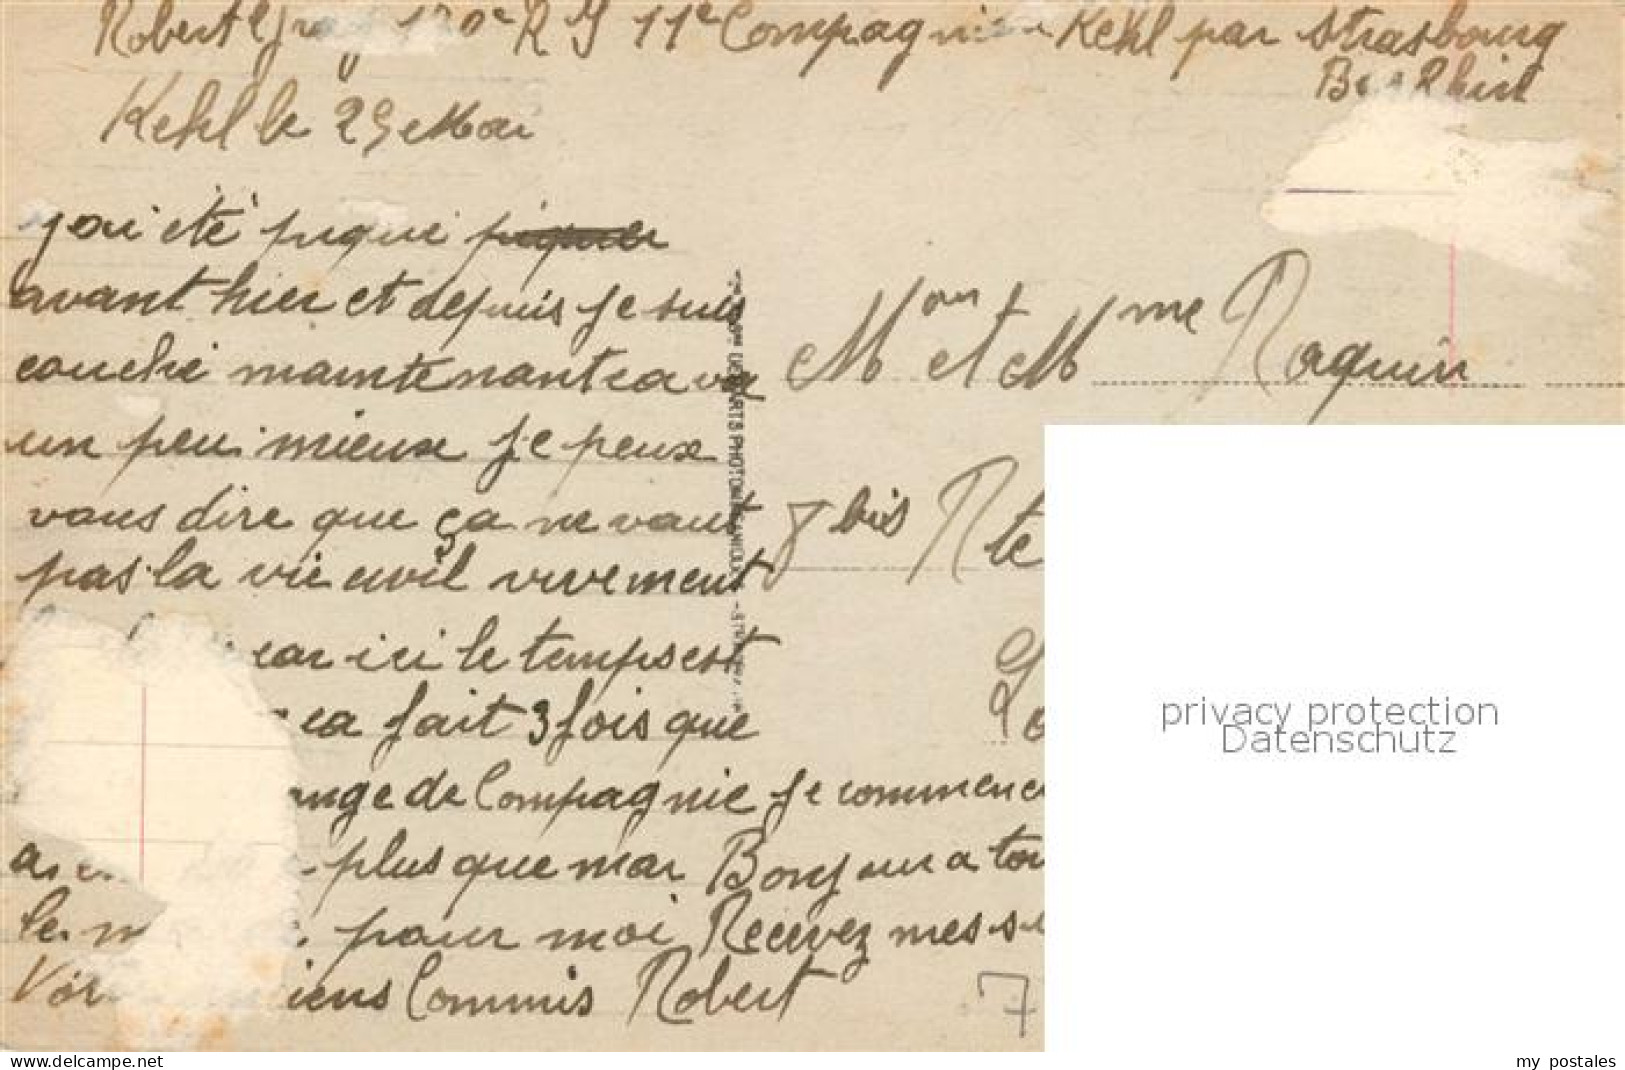 Robert 170e R I 11e Compagnie Kehl par Strasbourg
Bas Rhin
Kehl le 29 Mai
jai été piqué piquer
avant hier et depuis je suis
couché maintenant ca va
un peu mieux je peux
vous dire que ça ne vaut
pas la vie civil vivement
car ici le temps est
ca fait 3 fois que
ange de Compagnie je commence
plus que mar Bonjour a tou
pour moi Recevez mes
iens Commis Robert
Mon et Mme Raquin
8 bis Rte
Lo
7
privacy protection
Datenschutz
www.delcampe.net
my_postales